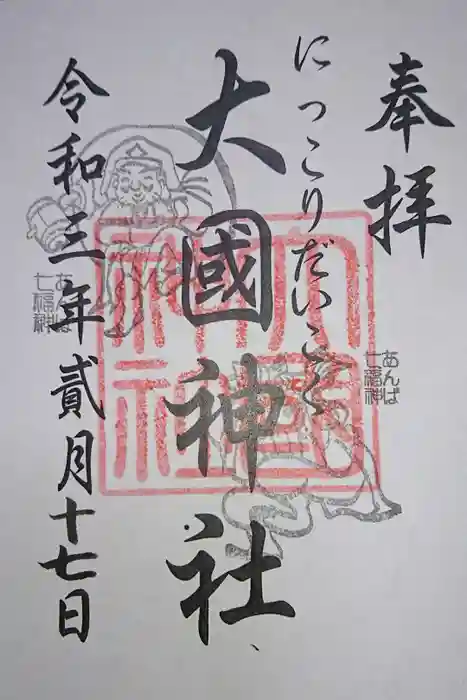 奉拝
にっこりだいこく
大國神社
令和三年貳月十七日
大國神社
あんば
七福神
あんば
七福神